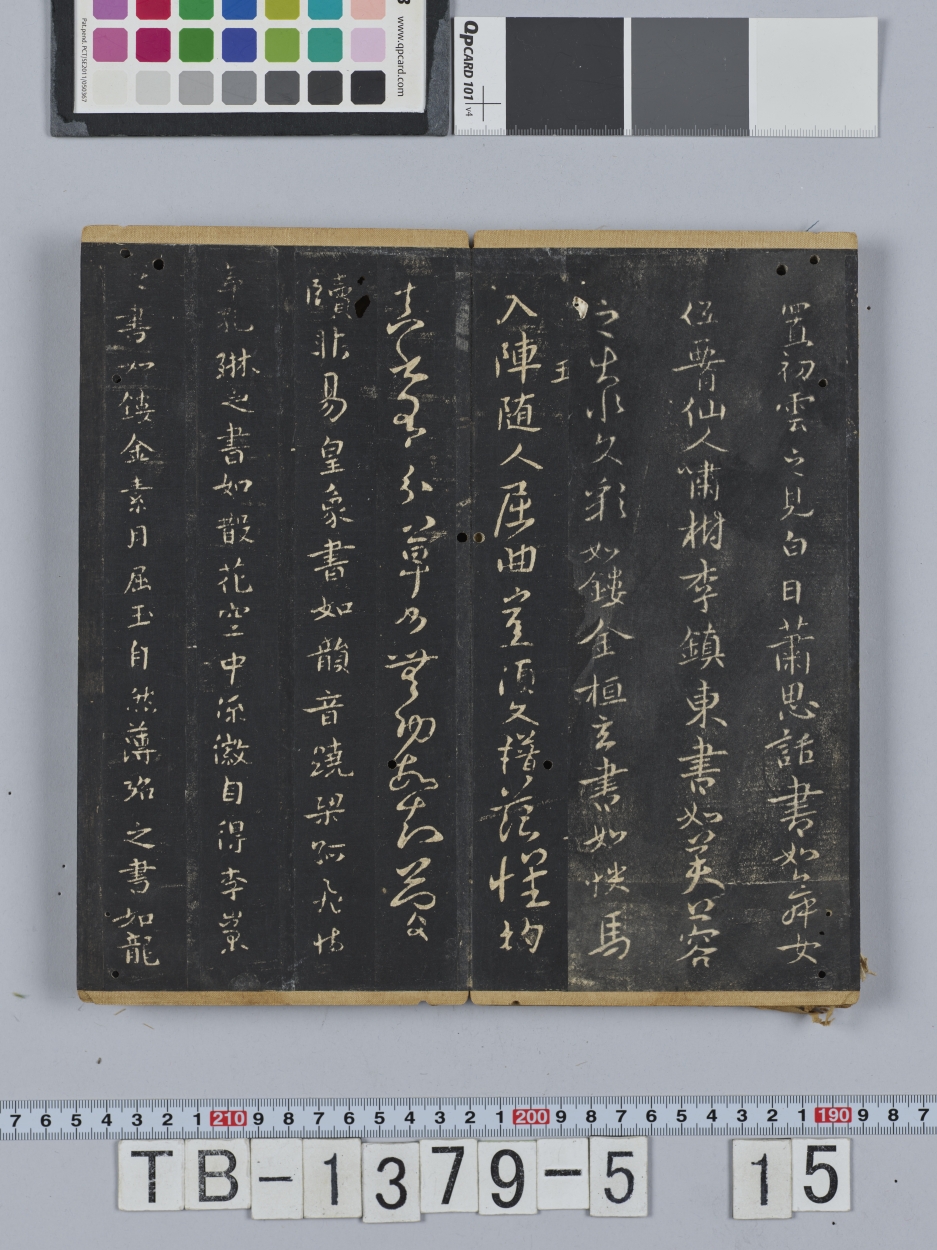 置初雲之見白日蕭思話書如舞女
低腰仙人嘯樹李鎮東書如芙蓉
之出水文彩如鏤金桓玄書如快馬
入陣随人屈曲豈須文譜范懷約
王
真書有分草乃無功故知簡
牘非易皇象書如韻音繞梁孤飛
孔琳之書如散花空中流徽自得李巖
之書如鏤金素月屈玉自然薄紹之書如龍
QpCARD 101 v4
www.qpcard.com
7 6 5 4 3 2 1 210 9 8 7 6 5 4 3 2 1 200 9 8 7 6 5 4 3 2 1 190 9 8 7
TB-1379-5 15